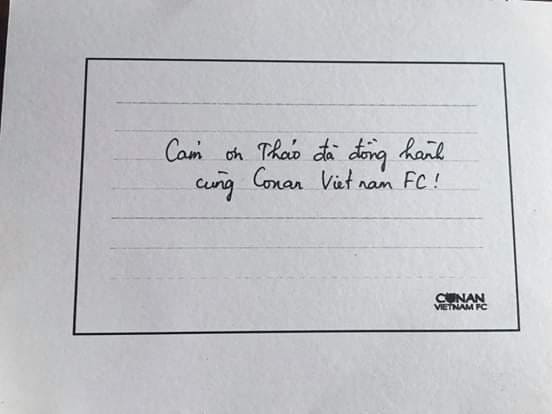 Cảm ơn Thảo đã đồng hành
cùng Conan Viet nam FC!
CONAN
VIETNAM FC